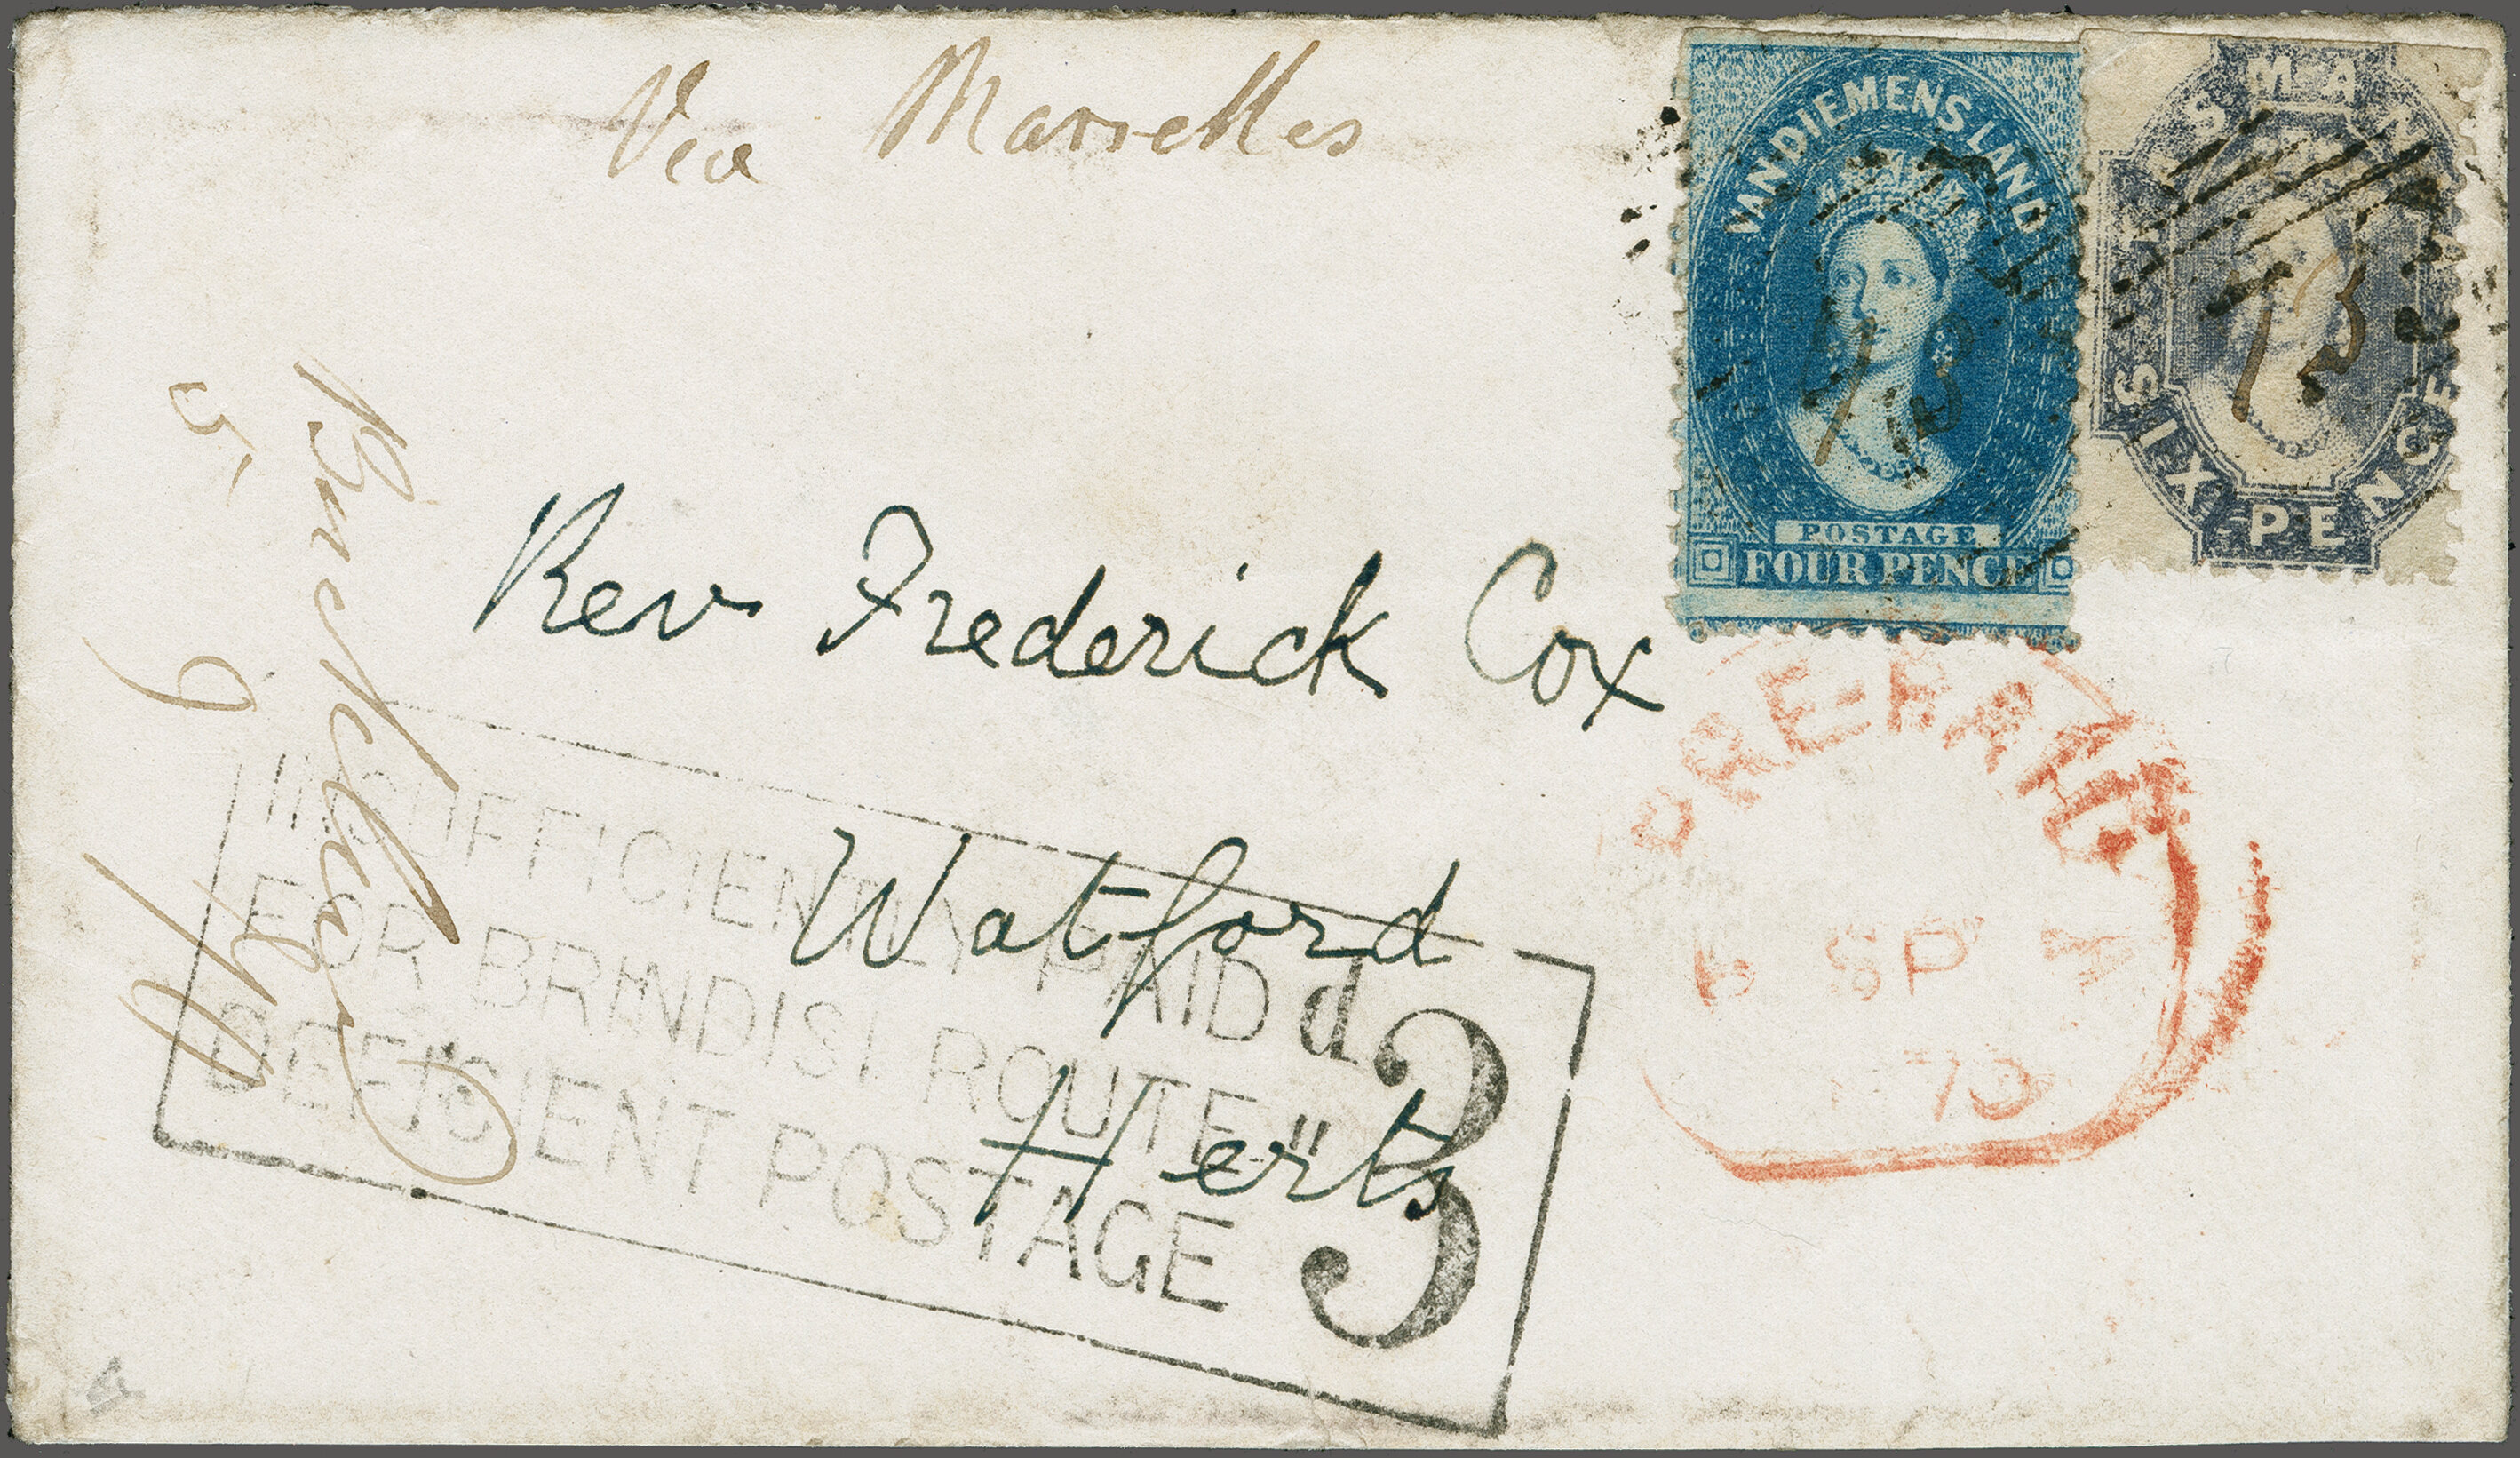 Via Marseilles
VAN DIEMENS LAND
POSTAGE
FOUR PENCE
TASMANIA
SIX PENCE
13
13
Rev Frederick Cox
Watford
Herts
PRE-PAID
SP
70
INSUFFICIENTLY PAID
FOR BRINDISI ROUTE
DEFICIENT POSTAGE
d
3
5
9